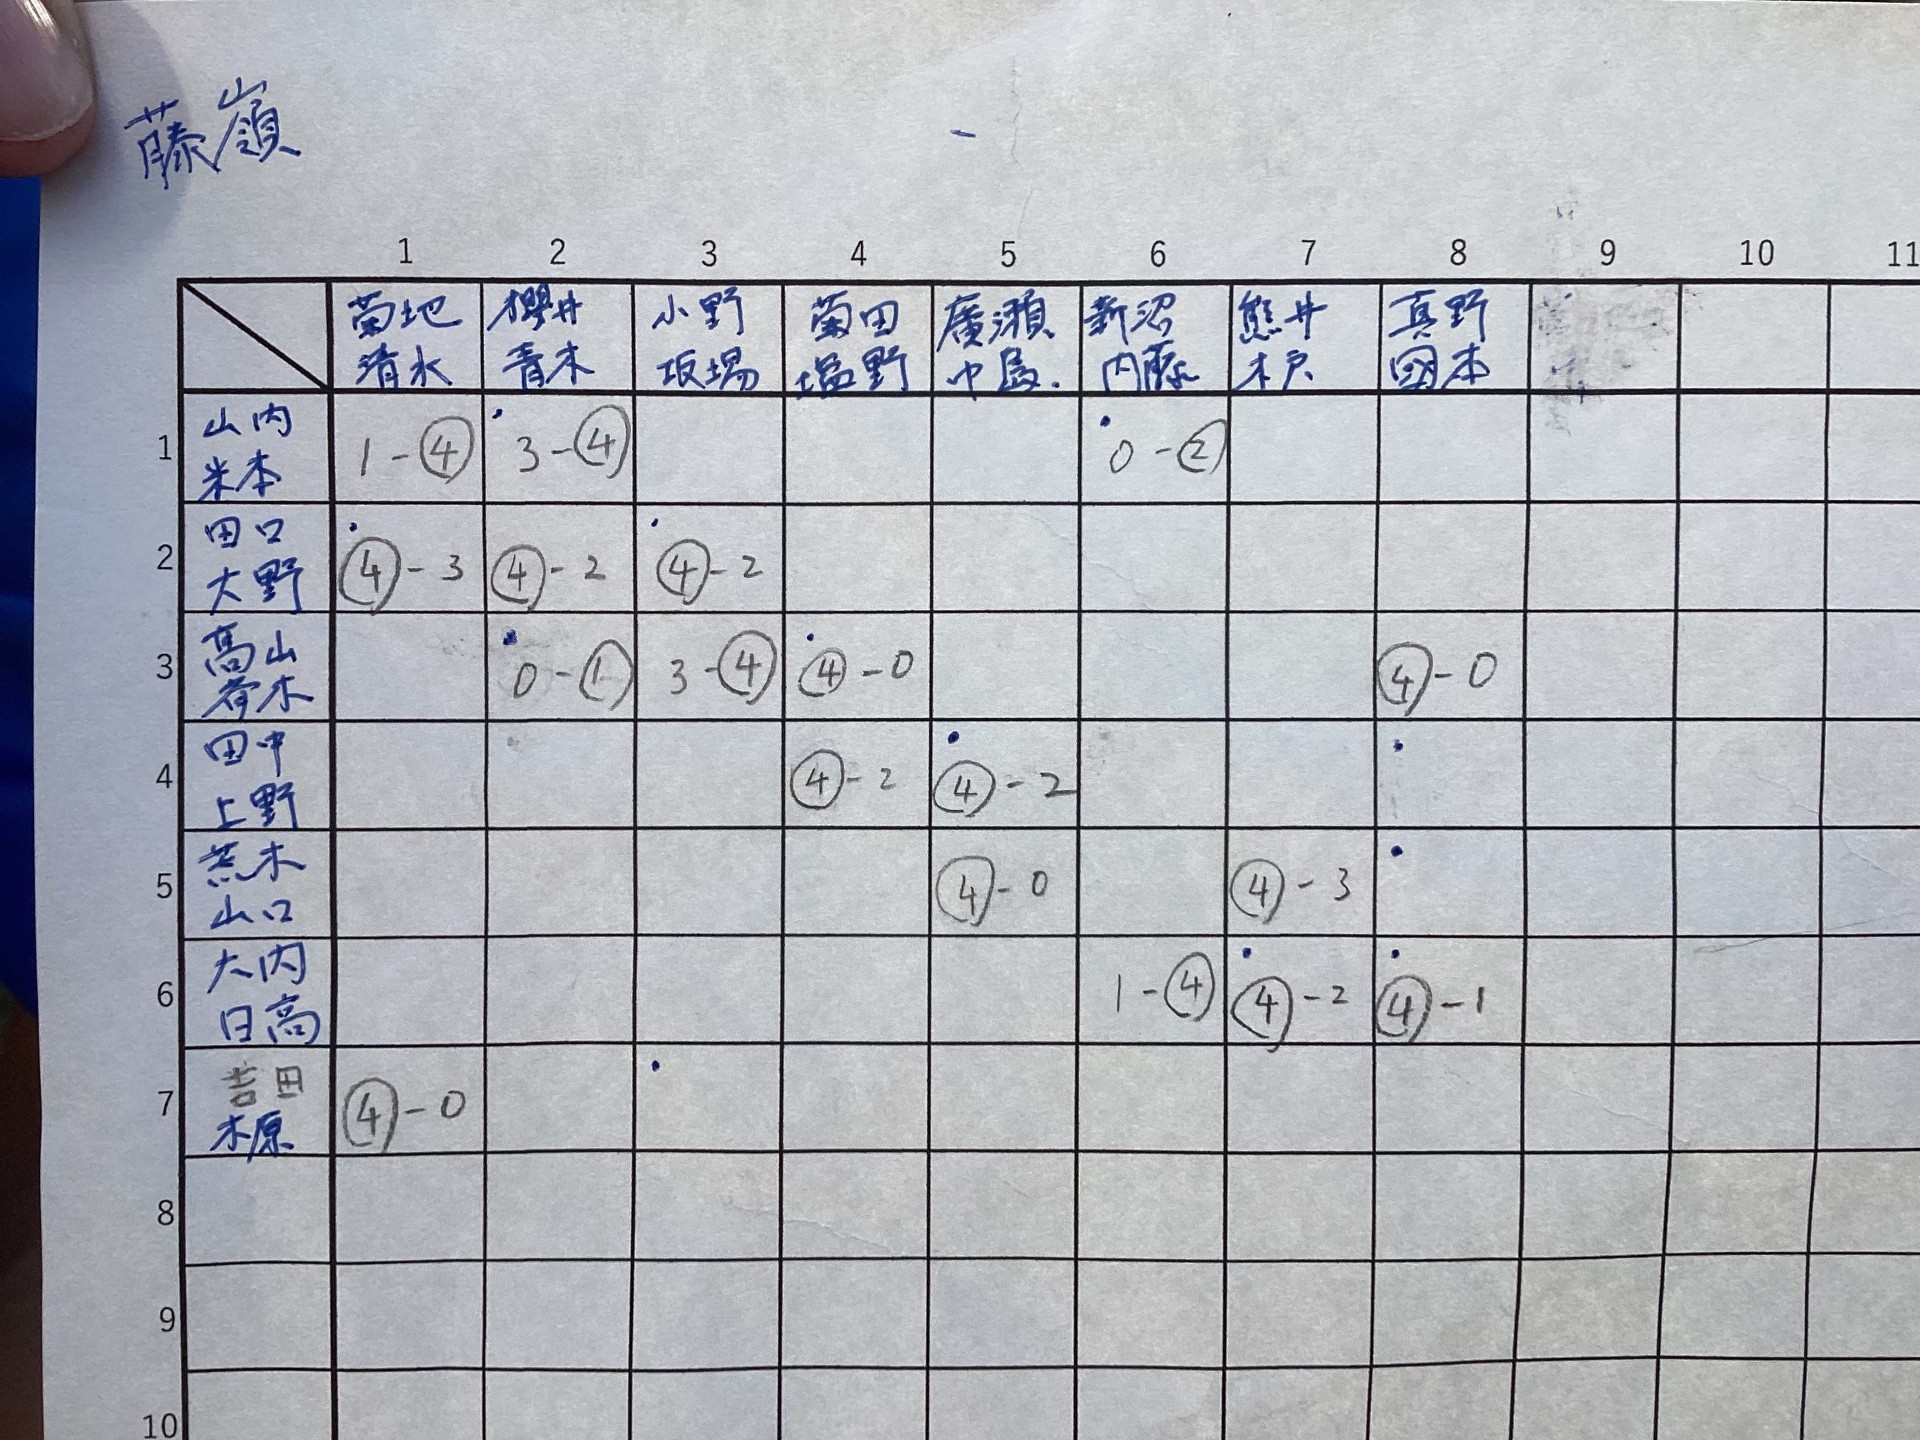 藤嶺
1 2 3 4 5 6 7 8 9 10 11
菊地 櫻井 小野 菊田 廣瀬 新沼 熊井 真野
清水 青木 坂場 塩野 中島. 内藤 木戸 國本
山内
1 1-④ 3-④ 0-②
米本
田口
2 ④-3 ④-2 ④-2
大野
高山
3 0-① 3-④ ④-0 ④-0
木
田中
4 ④-2 ④-2
上野
荒木
5 ④-0 ④-3
山口
大内
6 1-④ ④-2 ④-1
日高
吉田
7 ④-0
木原
8
9
10